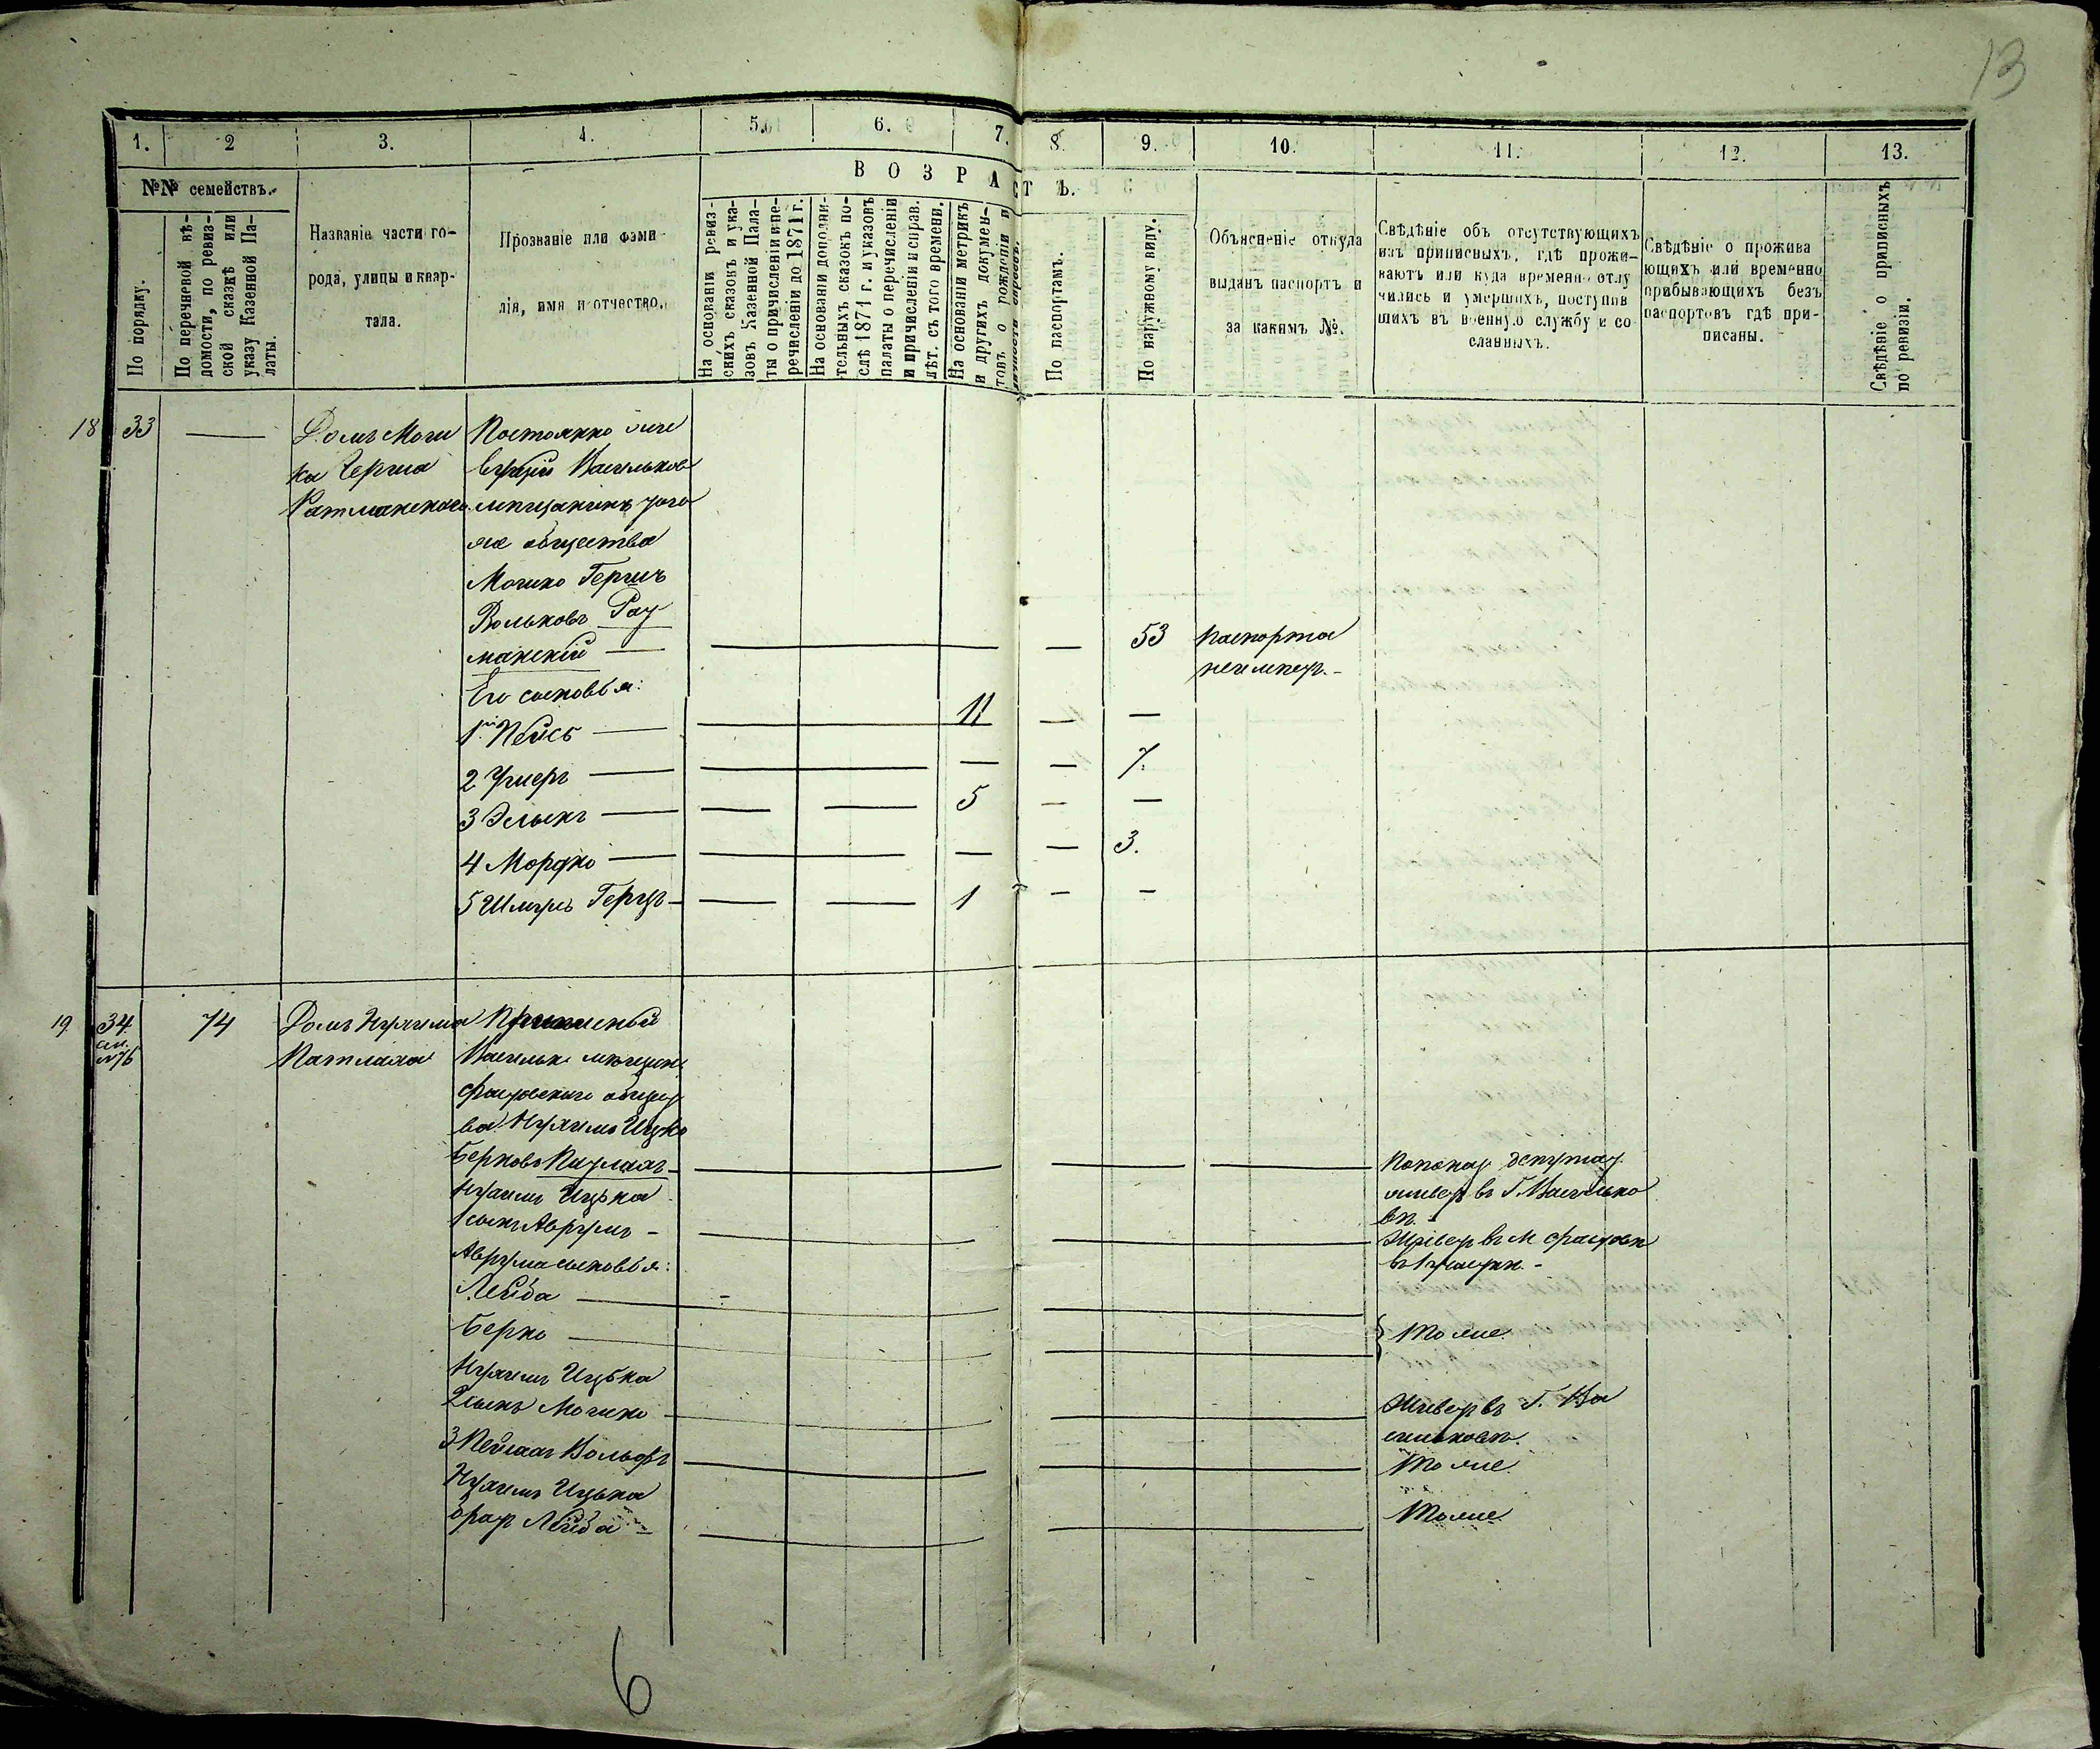 13
1. 2 3. 4. 5. 6. 7. 8. 9. 10. 11. 12. 13.
ВОЗРАСТЪ.
№№ семействъ.
По порядку.
По перечневой вѣ-
домости, по ревиз-
ской сказкѣ или
указу Казенной Па-
латы.
Названіе части го-
рода, улицы и квар-
тала.
Прозваніе или фами-
лія, имя и отчество.
На основаніи ревиз-
скихъ сказокъ и ука-
зовъ Казенной Пала-
ты о причисленіи и пе-
речисленіи до 1871 г.
На основаніи дополни-
тельныхъ сказокъ по-
слѣ 1871 г. и указовъ
палаты о перечисленіи
и причисленіи и справ.
лѣт. съ того времени.
На основаніи метрикъ
и другихъ докумен-
товъ о рожденіи и
По паспортамъ.
По наружному виду.
Объясненіе откуда
выданъ паспортъ и
за какимъ №.
Свѣдѣніе объ отсутствующихъ
изъ приписныхъ, гдѣ прожи-
ваютъ или куда временно отлу
чились и умершихъ, поступив
шихъ въ военную службу и со
сланныхъ.
Свѣдѣніе о прожива
ющихъ или временно
прибывающихъ безъ
паспортовъ гдѣ при-
писаны.
Свѣдѣніе о приписныхъ
по ревизіи.
18 33 — Домъ Мош Постоянно жи
ка Герша вущій Васильков
Ратманскаго мѣщанинъ того
же общества
Мошко Гершъ
Вольковъ Рат
манскій — 53 Паспорта
неимѣет.
Его сыновья:
1й Пейсъ — 11
2 Ушеръ — 7.
3 Элькъ — 5
4 Мордко — 3.
5 Шмуль Герцъ — 1
19 34 74 Домъ Нухима Приписной
№76 Патлаха Васильк. мѣщан.
фастовскаго общест
ва Нухимъ Ицко
Берковъ Патлахъ — Попокаж депутат
живет въ Г. Василько
вѣ.
Нухимъ Ицька
1 сынъ Аврумъ — Живет въ М Фастовѣ
Аврума сыновья:
Лейба —
Берко — } Тоже.
Нухимъ Ицька
2 сынъ Мошко — Живет въ Г. Ва
сильковѣ.
3 Пейсахъ Вольфъ — Тоже.
Нухимъ Ицька
брат Лейба — Тоже.
6